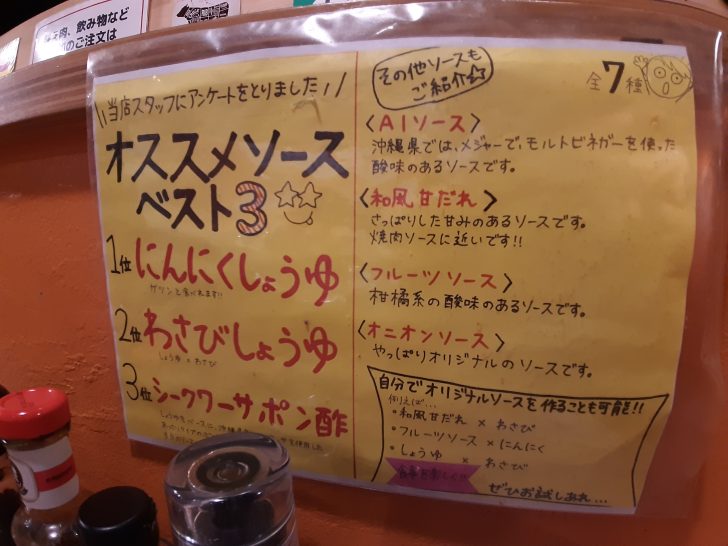 肉、飲み物など
のご注文は
当店スタッフにアンケートをとりました
オススメソース
ベスト3
1位 にんにくしょうゆ
ガツンと食べれます!!
2位 わさびしょうゆ
しょうゆ×わさび
3位 シークワーサーポン酢
その他ソースも
ご紹介
全7種
〈A1ソース〉
沖縄県では、メジャーで、モルトビネガーを使った
酸味のあるソースです。
〈和風甘だれ〉
さっぱりした甘みのあるソースです。
焼肉ソースに近いです!!
〈フルーツソース〉
柑橘系の酸味のあるソースです。
〈オニオンソース〉
やっぱりオリジナルのソースです。
自分でオリジナルソースを作ることも可能!!
例えば…
・和風甘だれ × わさび
・フルーツソース × にんにく
・しょうゆ × わさび
食事を楽しく!!
ぜひお試しあれ…